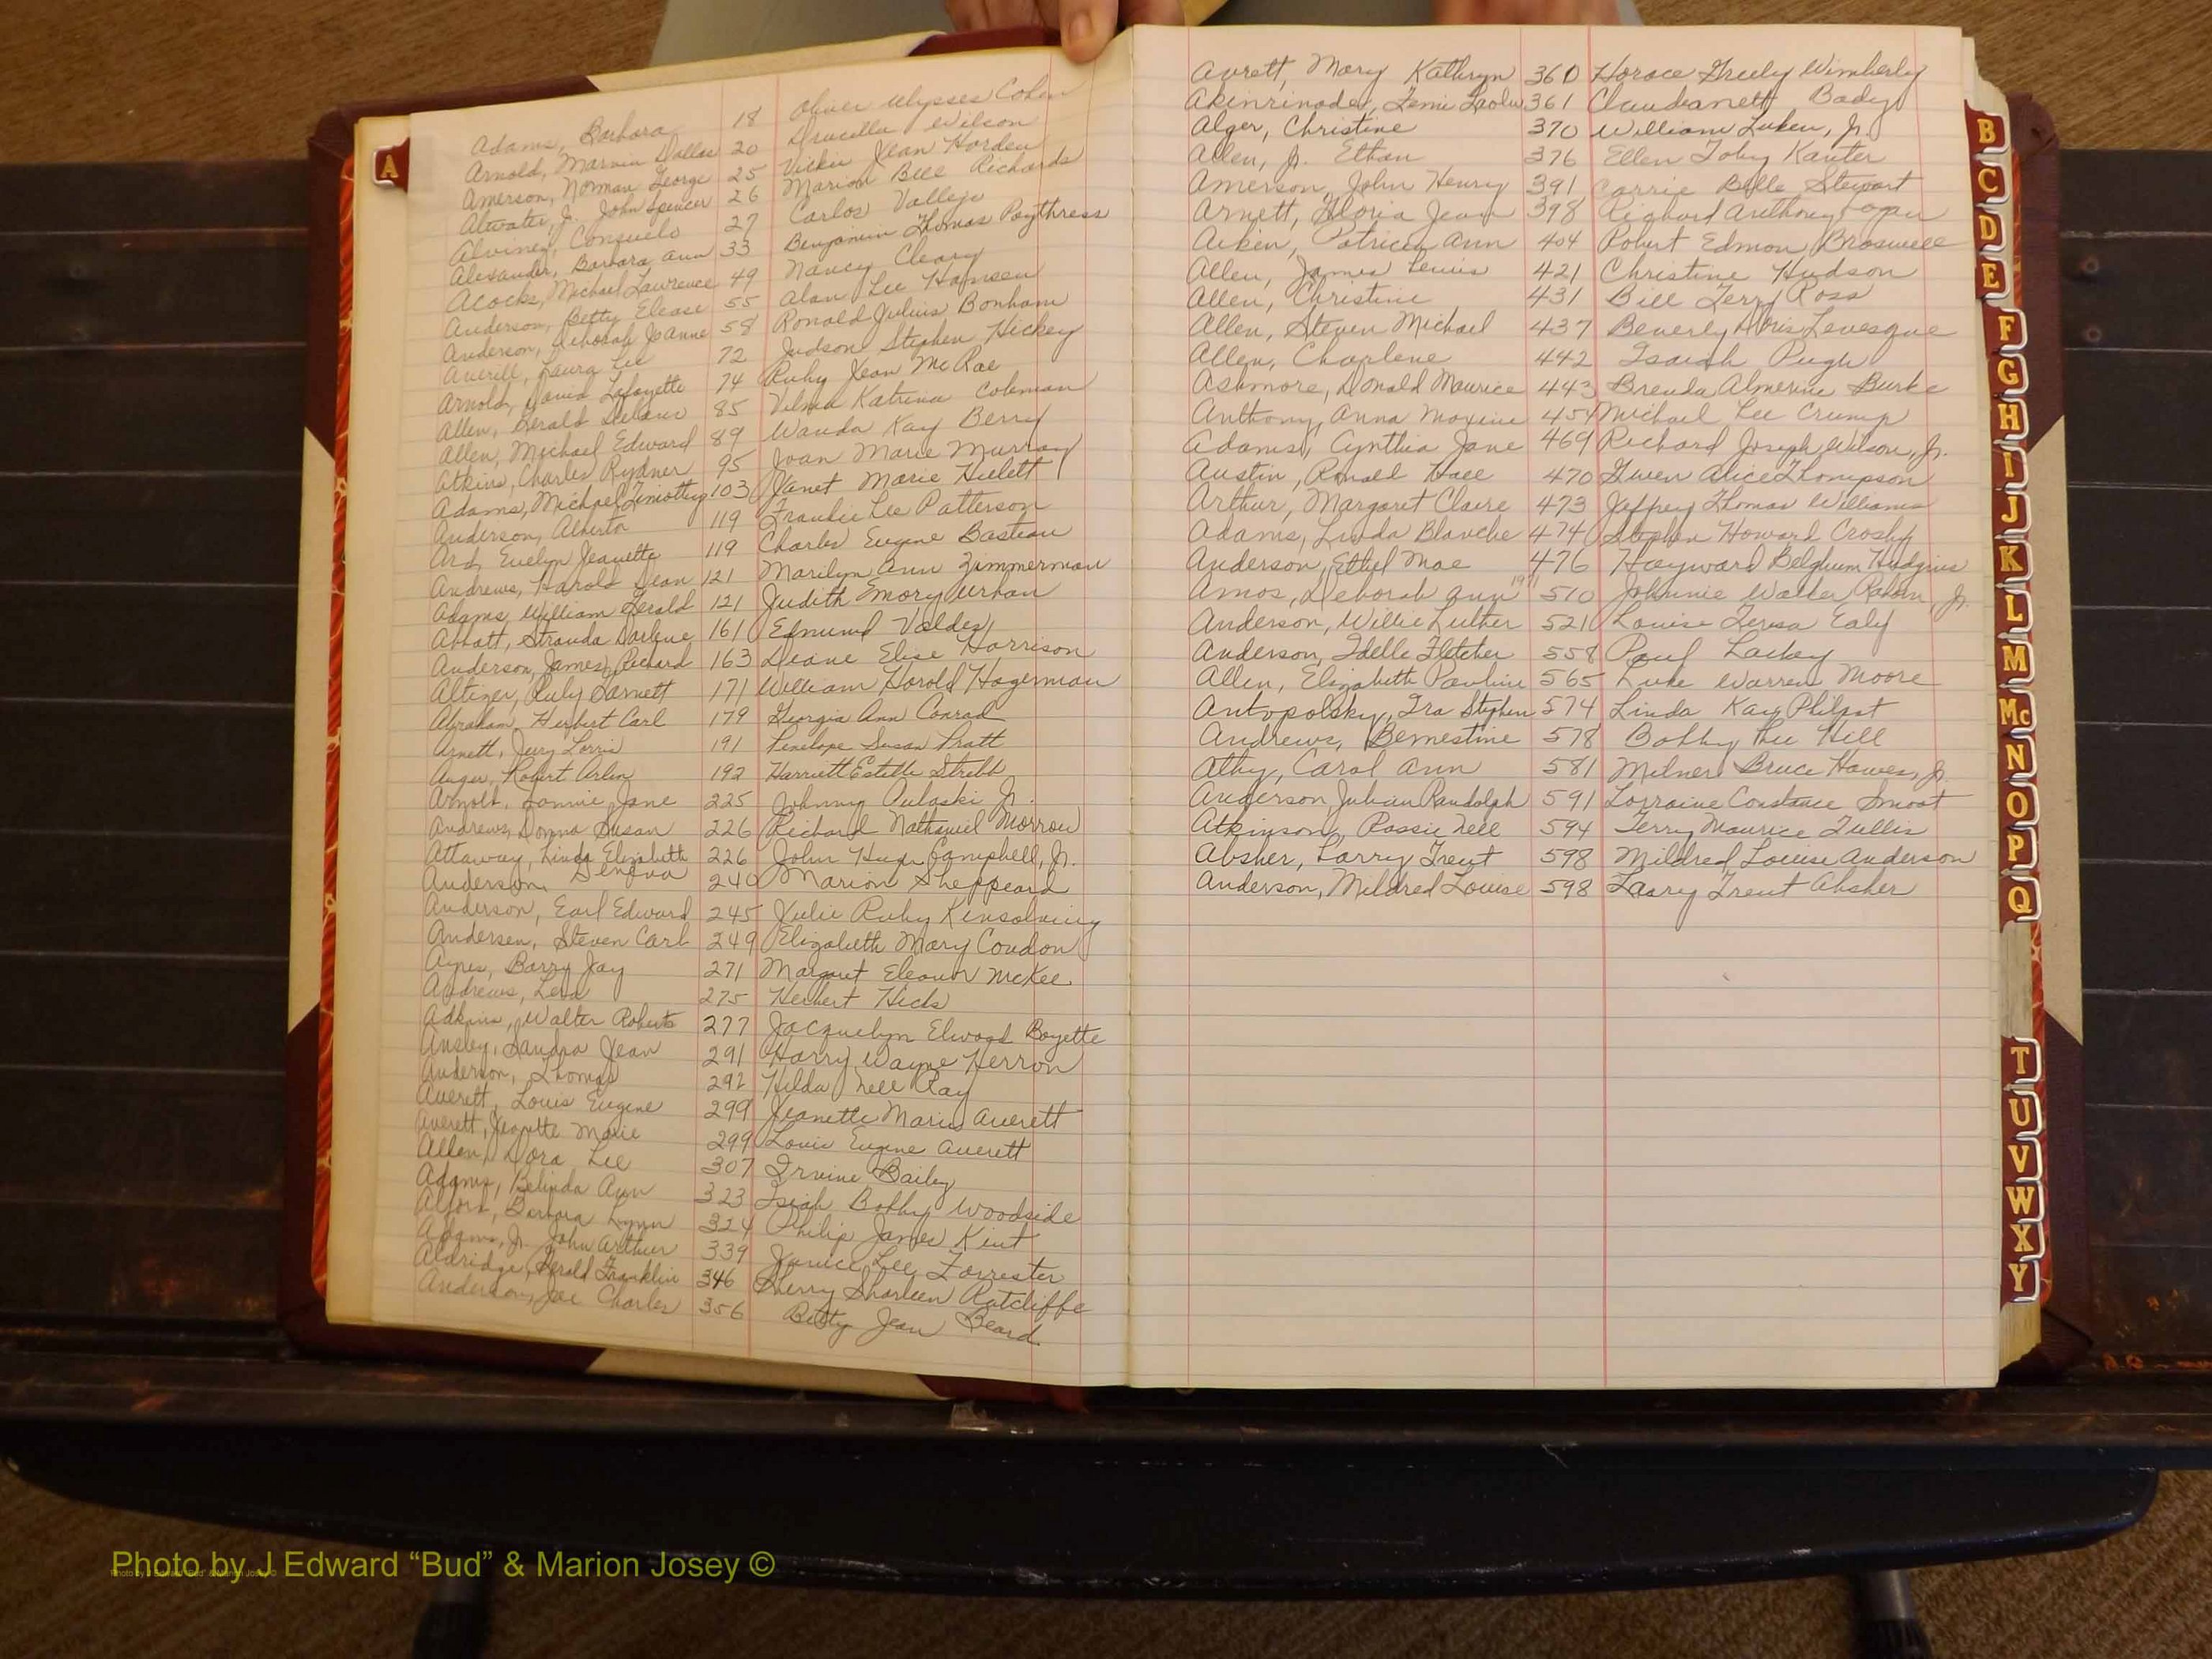 A
Adams, Barbara 18 Oliver Ulysses Cohen
Arnold, Marvin Dallas 20 Drucilla Wilson
Amerson, Norman George 25 Vickie Jean Horden
Atwater, Jr. John Spencer 26 Marion Bell Richards
Consuelo 27 Carlos Vallejo
Alexander, Barbara Ann 33 Benjamin Thomas Poythress
Acocks, Michael Lawrence 49 Nancy Cleary
Anderson, Betty Elease 55 Alan Lee Hansen
Anderson, Deborah Joanne 58 Ronald Julius Bonham
Averill, Laura Lee 72 Judson Stephen Hickey
Arnold, David Lafayette 74 Ruby Jean McRae
Allen, Gerald Delano 85 Velma Katrina Coleman
Allen, Michael Edward 89 Wanda Kay Berry
Atkins, Charles Rydner 95 Joan Marie Murray
Adams, Michael Timothy 103 Janet Marie Hulett
Anderson, Alberta 119 Frankie Lee Patterson
Ard, Evelyn Jeanette 119 Charles Eugene Bastian
Andrews, Harold Dean 121 Marilyn Ann Zimmerman
Adams, William Gerald 121 Judith Emory Urban
Abbott, Stranda Darlene 161 Edmund Valdes
Anderson, James Richard 163 Deane Elise Harrison
Altizer, Ruby Garnett 171 William Harold Hagerman
Abraham, Herbert Carl 179 Georgia Ann Conrad
Arnett, Jerry Lorris 191 Penelope Susan Pratt
Auger, Robert Arlen 192 Harriett Estelle Stribb
Arnold, Lonnie Jane 225 Johnny Pulaski Jr.
Andrews, Donna Susan 226 Richard Nathaniel Morrow
Attaway, Linda Elizabeth 226 John Hugh Campbell, Jr.
Anderson, Geneva 240 Marion Sheppeard
Anderson, Earl Edward 245 Julie Ruby Kinsolving
Andersen, Steven Carl 249 Elizabeth Mary Condon
Ayres, Barry Jay 271 Margaret Eleanor McKee
Andrews, Lena 275 Herbert Hicks
Adkins, Walter Roberts 277 Jacquelyn Elwood Boyette
Ansley, Sandra Jean 291 Harry Wayne Herron
Anderson, Thomas 292 Hilda Nell Ray
Averett, Louis Eugene 299 Jeanette Marie Averett
Averett, Jeanette Marie 299 Louis Eugene Averett
Allen, Dora Lee 307 Irvine Bailey
Adams, Belinda Ann 323 Isiah Bobby Woodside
Alford, Barbara Lynn 324 Philip James Kent
Adams, Jr. John Arthur 339 Janice Lee Forrester
Aldridge, Gerald Franklin 346 Sherry Sharleen Ratcliffe
Anderson, Joe Charles 356 Betty Jean Beard
Avrett, Mary Kathryn 360 Horace Greely Wimberly
Akinrinade, Femi Laolu 361 Claudeanett Bady
Alger, Christine 370 William Luken, Jr.
Allen, Jr. Ethan 376 Ellen Toby Kanter
Amerson, John Henry 391 Carrie Belle Stewart
Arnett, Gloria Jean 398 Richard Anthony
Aiken, Patricia Ann 404 Robert Edmon Braswell
Allen, James Lewis 421 Christine Hudson
Allen, Christine 431 Bill Terry Ross
Allen, Steven Michael 437 Beverly Doris Levesque
Allen, Charlene 442 Isaiah Pugh
Ashmore, Donald Maurice 443 Brenda Almerine Burke
Anthony, Anna Maxine 454 Michael Lee Crump
Adams, Cynthia Jane 469 Richard Joseph Wilson, Jr.
Austin, Ronald Hall 470 Gwen Alice Thompson
Arthur, Margaret Claire 473 Jeffrey Thomas Williams
Adams, Linda Blanche 474 Stephen Howard Crosby
Anderson, Ethel Mae 476 Hayward Belgium Hudgins
Amos, Deborah Ann 1971 510 Johnnie Walter Jr.
Anderson, Willie Luther 521 Louise Teresa Ealy
Anderson, Idelle Fletcher 558 Paul Lackey
Allen, Elizabeth Pauline 565 Luke Warren Moore
Antopolsky, Ira Stephen 574 Linda Kay Philpot
Andrews, Bernestine 578 Bobby Lee Hill
Athy, Carol Ann 581 Milner Bruce Hawes, Jr.
Anderson Julian Randolph 591 Lorraine Constance Smoot
Atkinson, Rossie Nell 594 Terry Maurice Tullis
Absher, Larry Trent 598 Mildred Louise Anderson
Anderson, Mildred Louise 598 Larry Trent Absher
B
C
D
E
F
G
H
I
J
K
L
M
Mc
N
O
P
Q
T
U
V
W
X
Y
Photo by J Edward “Bud” & Marion Josey ©
Photo by J Edward “Bud” & Marion Josey ©